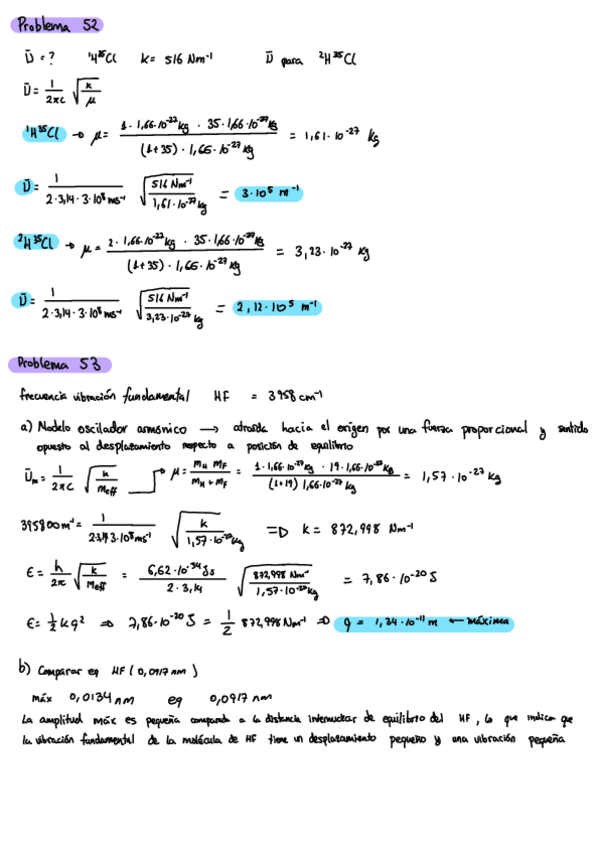 Problema 52
ῡ = ? ¹H³⁵Cl k = 516 Nm⁻¹ ῡ para ²H³⁵Cl
ῡ = 1 / 2πc √(k / μ)
¹H³⁵Cl → μ = 1 · 1,66 · 10⁻²⁷ kg · 35 · 1,66 · 10⁻²⁷ kg / (1+35) · 1,66 · 10⁻²⁷ kg = 1,61 · 10⁻²⁷ kg
ῡ = 1 / 2 · 3,14 · 3 · 10⁸ ms⁻¹ √(516 Nm⁻¹ / 1,61 · 10⁻²⁷ kg) = 3 · 10⁵ m⁻¹
²H³⁵Cl → μ = 2 · 1,66 · 10⁻²⁷ kg · 35 · 1,66 · 10⁻²⁷ kg / (1+35) · 1,66 · 10⁻²⁷ kg = 3,23 · 10⁻²⁷ kg
ῡ = 1 / 2 · 3,14 · 3 · 10⁸ ms⁻¹ √(516 Nm⁻¹ / 3,23 · 10⁻²⁷ kg) = 2,12 · 10⁵ m⁻¹
Problema 53
frecuencia vibración fundamental HF = 3958 cm⁻¹
a) Modelo oscilador armónico → atraída hacia el origen por una fuerza proporcional y sentido
opuesto al desplazamiento respecto a posición de equilibrio
ῡm = 1 / 2πc √(k / meff) → μ = mH mF / mH + mF = 1 · 1,66 · 10⁻²⁷ kg · 19 · 1,66 · 10⁻²⁷ kg / (1+19) 1,66 · 10⁻²⁷ kg = 1,57 · 10⁻²⁷ kg
395800 m⁻¹ = 1 / 2 · 3,14 · 3 · 10⁸ ms⁻¹ √(k / 1,57 · 10⁻²⁷ kg) ⇒ k = 872,998 Nm⁻¹
ε = h / 2π √(k / meff) = 6,62 · 10⁻³⁴ Js / 2 · 3,14 √(872,998 Nm⁻¹ / 1,57 · 10⁻²⁷ kg) = 7,86 · 10⁻²⁰ J
ε = ½ k q² ⇒ 7,86 · 10⁻²⁰ J = 1/2 872,998 Nm⁻¹ ⇒ q = 1,34 · 10⁻¹¹ m ← máxima
b) Comparar eq HF (0,0917 nm)
máx 0,0134 nm eq 0,0917 nm
La amplitud máx es pequeña comparada a la distancia internuclear de equilibrio del HF, lo que indica que
la vibración fundamental de la molécula de HF tiene un desplazamiento pequeño y una vibración pequeña